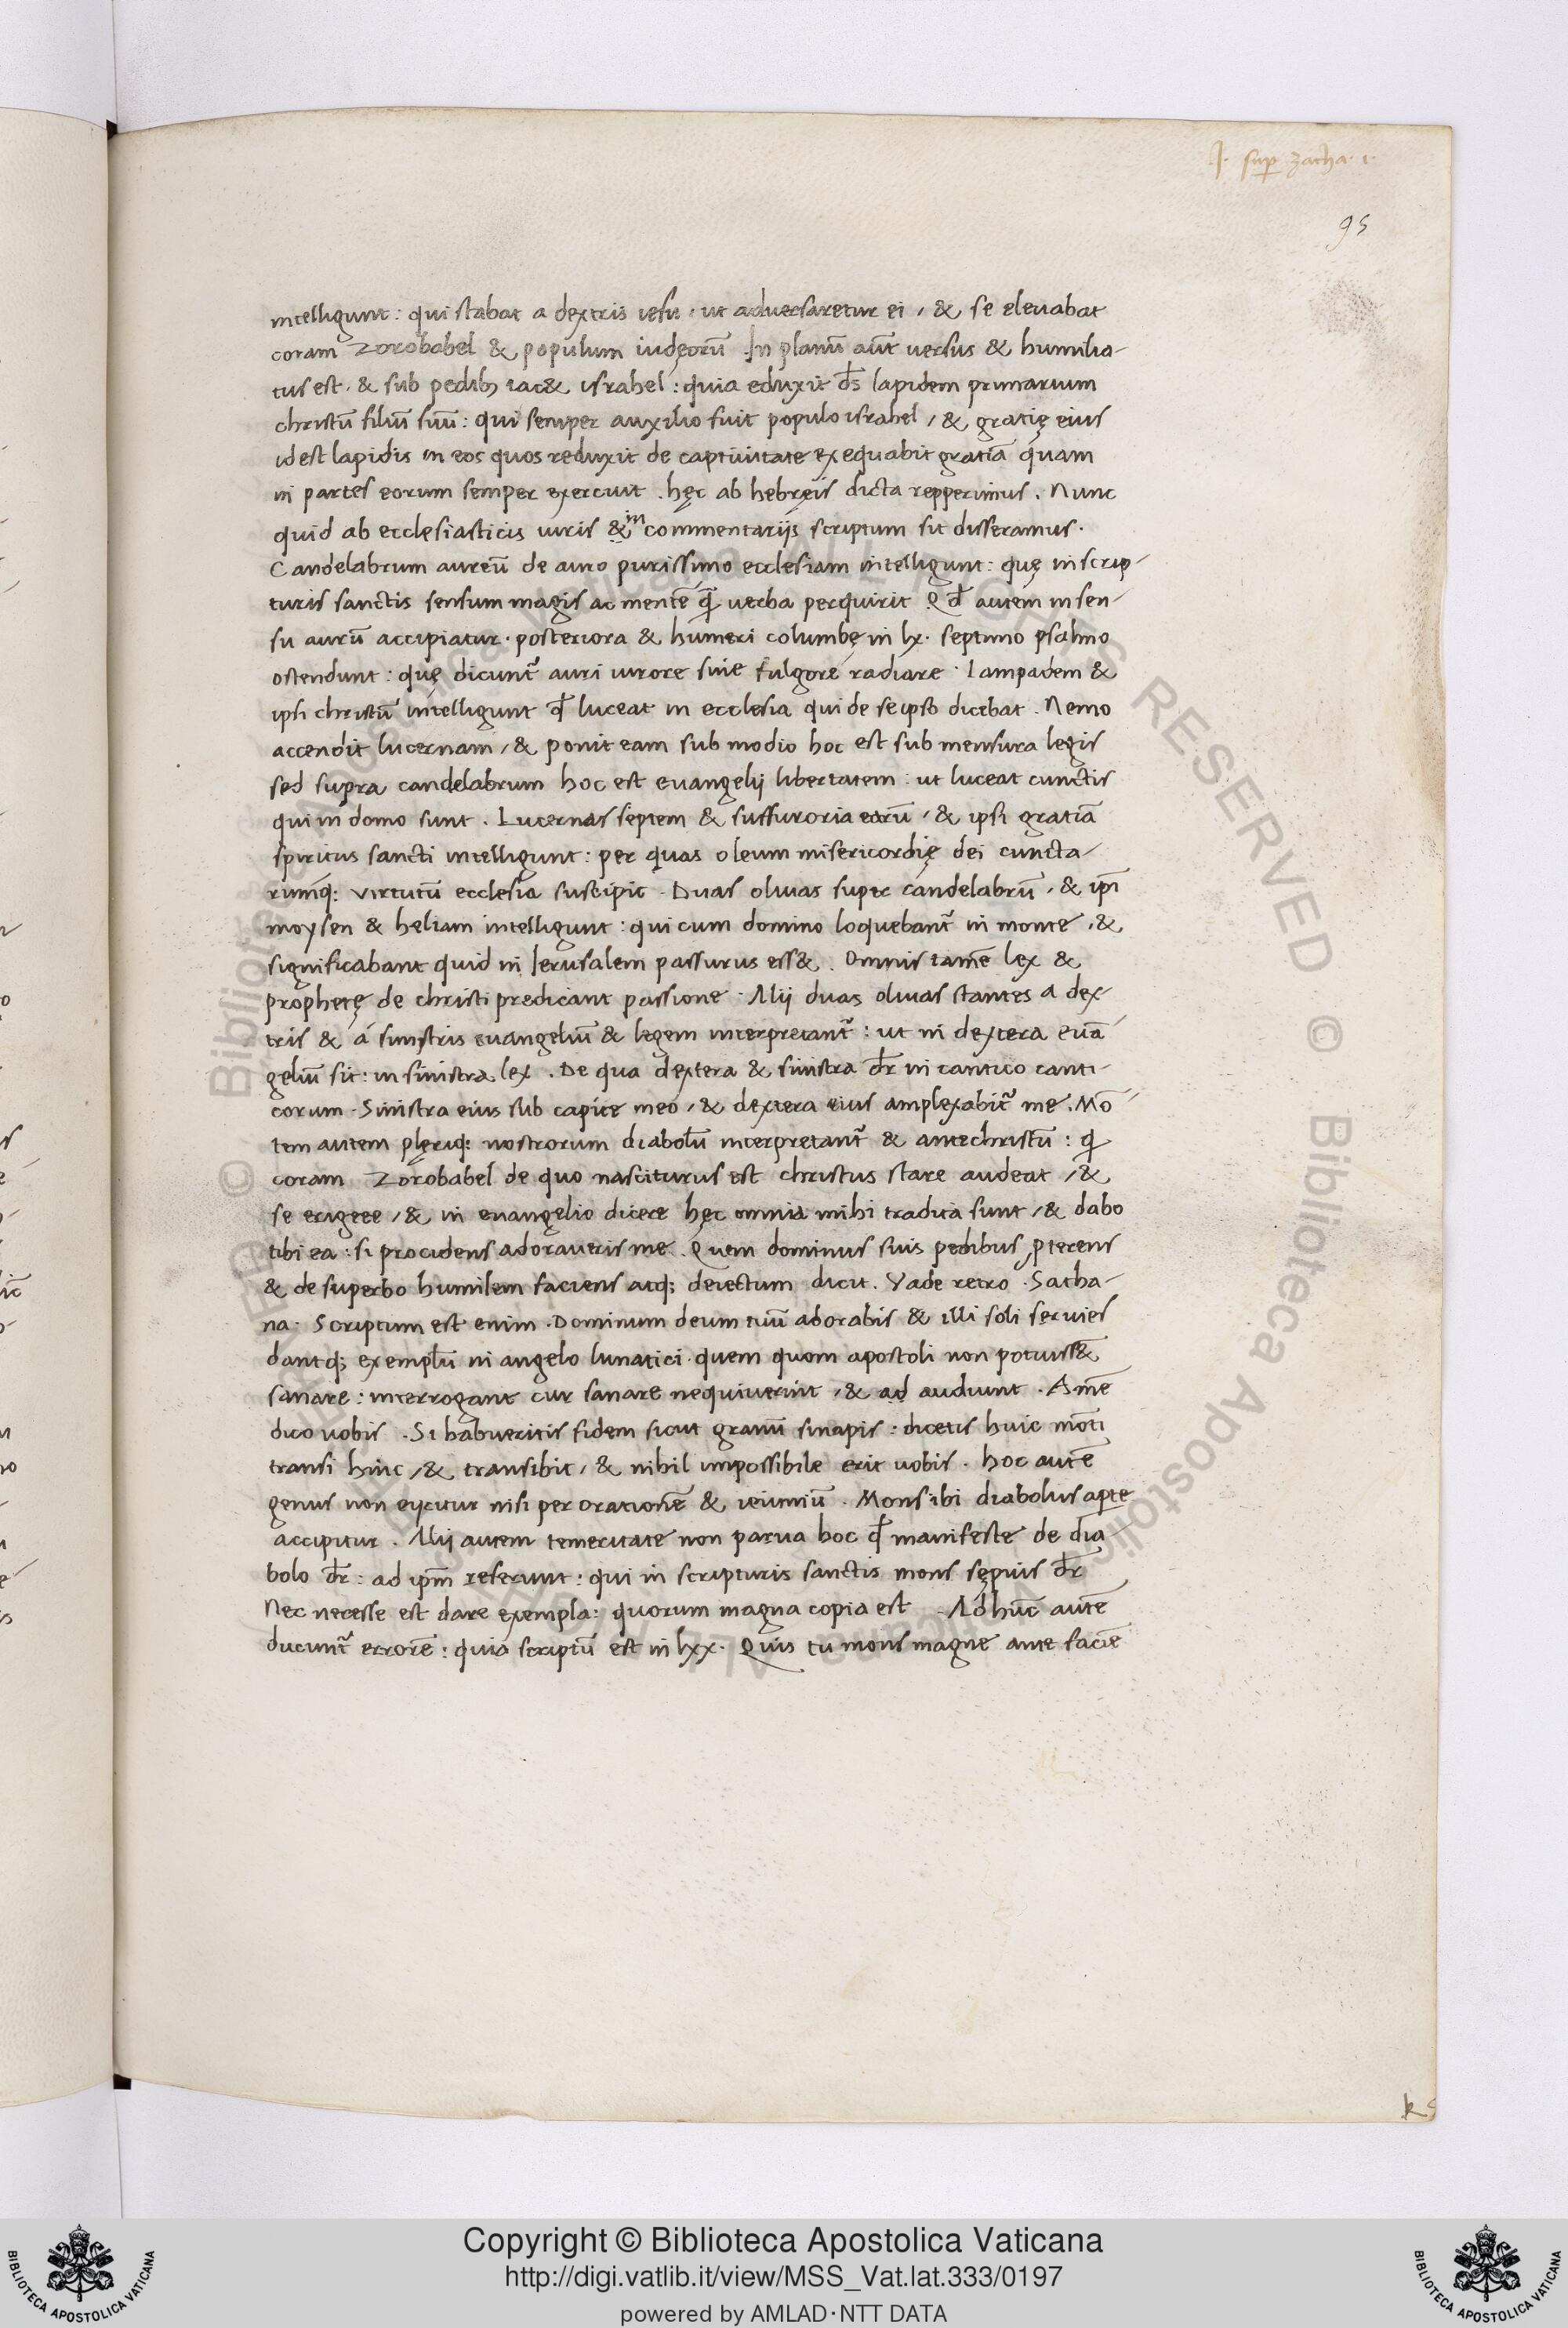 J. sup zacha. 1.
95
intelligunt: qui stabat a dextris iesu, ut aduersaretur ei, & se eleuabat
coram Zorobabel & populum iudęorū. In planū aūt uersus & humilia-
tus est. & sub pedibꝫ iac& israhel: quia eduxit d̄s lapidem primarium
christū filiū suū: qui semper auxilio fuit populo israhel, & gratię eius
id est lapidis in eos quos reduxit de captiuitate exequabit gratiā quam
in partes eorum semper exercuit. hęc ab hebręis dicta repperimus. Nunc
quid ab ecclesiasticis uiris & in commentarijs scriptum sit disseramus.
Candelabrum aureū de auro purissimo ecclesiam intelligunt: quę in scrip-
turis sanctis sensum magis ac mentē q̄ uerba perquirit. Qđ autem in sen-
su aurū accipiatur. posteriora & humeri columbę in lx. septimo psalmo
ostendunt: quę dicunt᷑ auri uirore siue fulgore radiare. Lampadem &
ipsi christū intelligunt q̄ luceat in ecclesia qui de se ipso dicebat. Nemo
accendit lucernam, & ponit eam sub modio hoc est sub mensura legis
sed supra candelabrum hoc est euangelij libertatem: ut luceat cunctis
qui in domo sunt. Lucernas septem & suffuroria earū, & ipsi gratiā
spiritus sancti intelligunt: per quas oleum misericordię dei cuncta-
rumq: virtutū ecclesia suscipit. Duas oliuas super candelabrū, & ip̄i
moysen & heliam intelligunt: qui cum domino loquebant᷑ in monte, &
significabant quid in Ierusalem passurus ess&. Omnis tamē lex &
prophetę de christi predicant passione. Alij duas oliuas stantes a dex-
tris & á sinistris euangeliū & legem interpretant᷑: ut in dextera euā
geliū sit: in sinistra lex. De qua dextera & sinistra dr̄ in cantico canti-
corum. Sinistra eius sub capite meo, & dextera eius amplexabit᷑ me. Mō
tem autem plęriq: nostrorum diabolū interpretant᷑ & antechristū: q̄
coram Zorobabel de quo nasciturus est christus stare audeat, &
se erigere, & in euangelio dicere hęc omnia mihi tradita sunt, & dabo
tibi ea: si procidens adoraueris me. Quem dominus suis pedibus ꝓterens
& de superbo humilem faciens atq; deiectum dicit. Vade retro. Satha-
na. Scriptum est enim. Dominum deum tuū adorabis & illi soli seruies
dantq; exemplū in angelo lunatici. quem quom apostoli non potuiss&
sanare: interrogant cur sanare nequiuerint, & ad audiunt. Amē
dico uobis. Si habueritis fidem sicut granū sinapis: dicetis huic mōti
transi hinc, & transibit, & nihil impossibile erit uobis. hoc autē
genus non eijcitur nisi per orationē & ieiuniū. Mons ibi diabolus aperte
accipitur. Alij autem temeritate non parua hoc q̄ manifeste de dia-
bolo dr̄: ad ip̄m referunt: qui in scripturis sanctis mons sępius dr̄
Nec necesse est dare exempla: quorum magna copia est. Ad hūc autē
ducunt᷑ errorē: quia scriptū est in lxx. Quis tu mons magne ante faciē
k
Copyright © Biblioteca Apostolica Vaticana
http://digi.vatlib.it/view/MSS_Vat.lat.333/0197
powered by AMLAD·NTT DATA